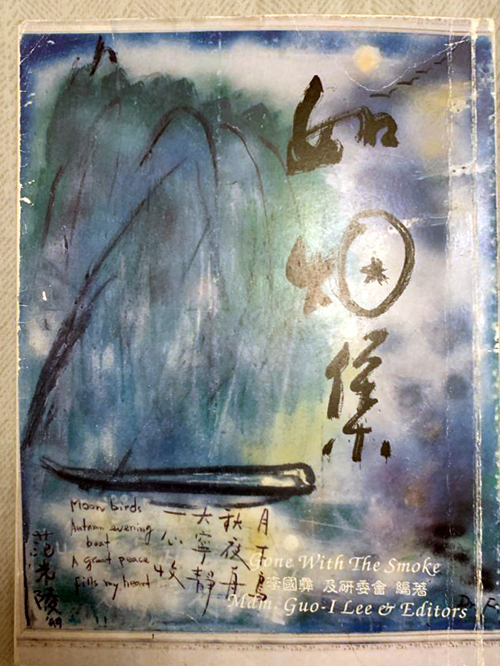 如烟集
月下鳥
秋夜舟
大寧靜
一心收
Moon birds
Autumn evening
boat
A great peace
fills my heart
范光陵
Gone With The Smoke
李國彝 及研委會 編著
Mdm. Guo-I Lee & Editors